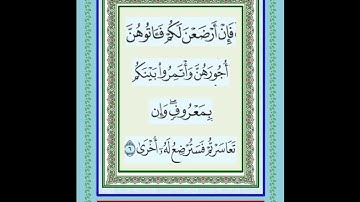 فَإِنْ أَرْضَعْنَ لَكُمْ فَـَٔاتُوهُنَّ
أُجُورَهُنَّ وَأْتَمِرُوا۟ بَيْنَكُم
بِمَعْرُوفٍۢ ۖ وَإِن
تَعَاسَرْتُمْ فَسَتُرْضِعُ لَهُۥٓ أُخْرَىٰ ٦